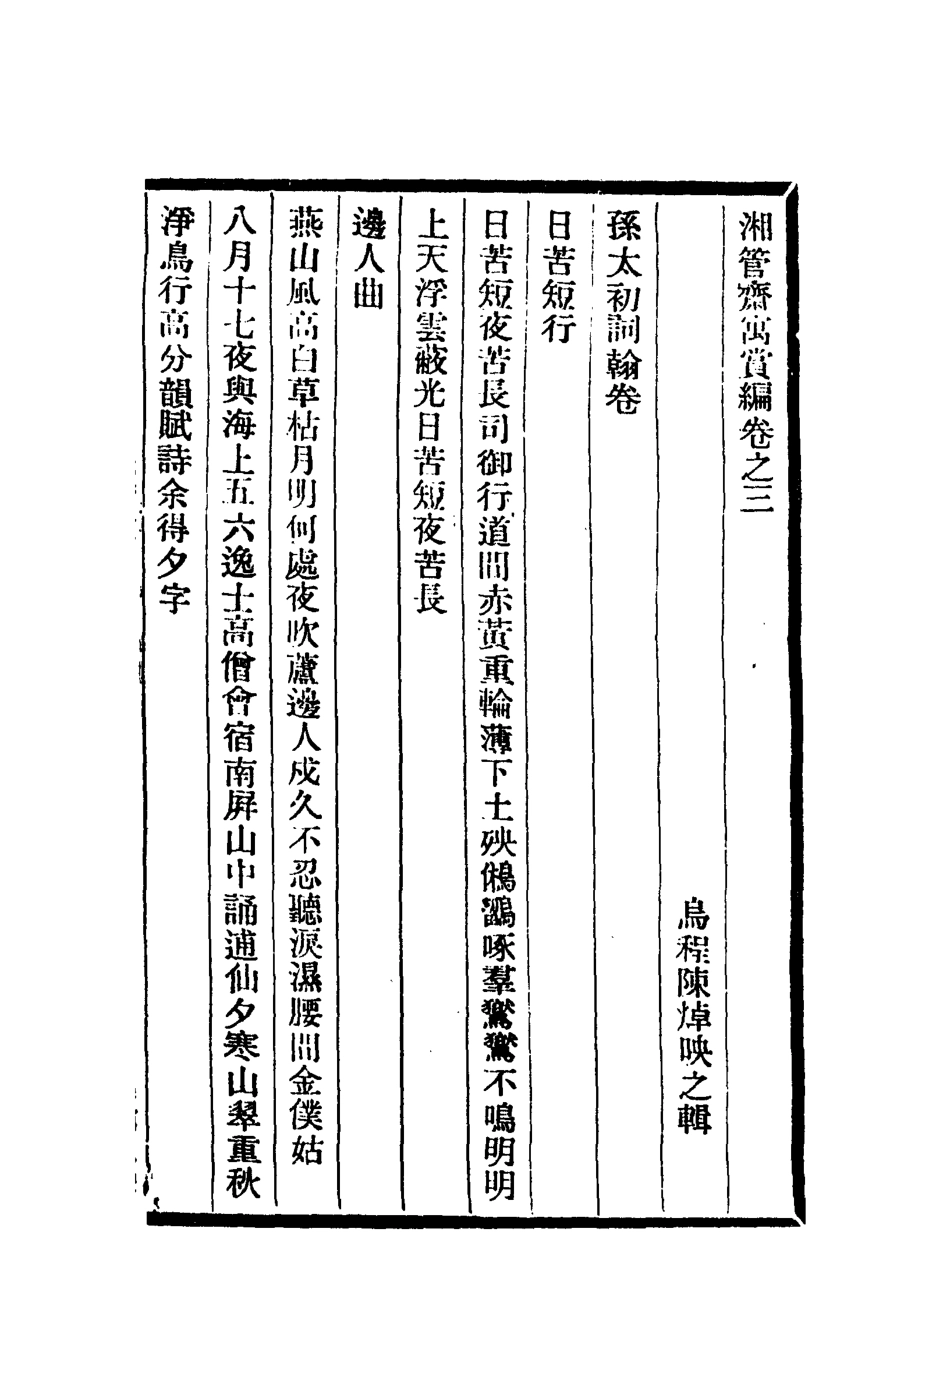 湘管齋寓賞編卷之三
烏程陳焯映之輯
孫太初詞翰卷
日苦短行
日苦短夜苦長司御行道間赤黃重輪薄下土殃鵂鶹啄羣鸑鷟不鳴明明
上天浮雲蔽光日苦短夜苦長
邊人曲
燕山風高白草枯月明何處夜吹蘆邊人戍久不忍聽淚濕腰間金僕姑
八月十七夜與海上五六逸士高僧會宿南屏山中誦逋仙夕寒山翠重秋
淨鳥行高分韻賦詩余得夕字